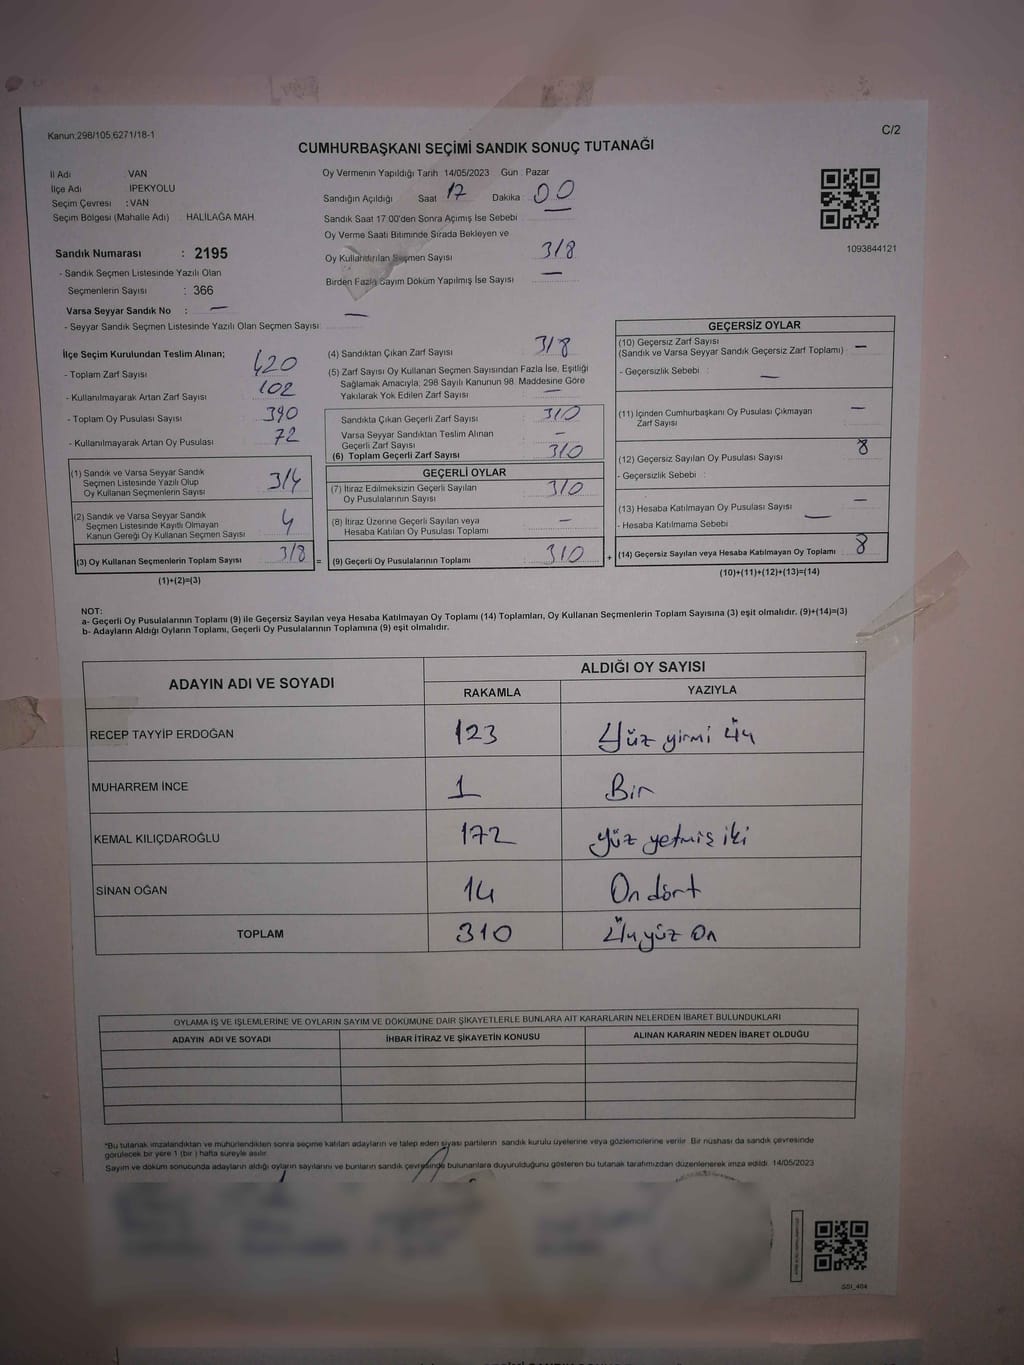 Kanun:298/105,6271/18-1
C/2
CUMHURBAŞKANI SEÇİMİ SANDIK SONUÇ TUTANAĞI
İl Adı VAN
İlçe Adı İPEKYOLU
Seçim Çevresi : VAN
Seçim Bölgesi (Mahalle Adı) HALİLAĞA MAH.
Oy Vermenin Yapıldığı Tarih 14/05/2023 Gün : Pazar
Sandığın Açıldığı Saat 17 Dakika 00
Sandık Saat 17:00'den Sonra Açımış İse Sebebi
Oy Verme Saati Bitiminde Sırada Bekleyen ve
Oy Kullandırılan Seçmen Sayısı 318
Birden Fazla Sayım Döküm Yapılmış İse Sayısı —
1093844121
Sandık Numarası : 2195
- Sandık Seçmen Listesinde Yazılı Olan
Seçmenlerin Sayısı : 366
Varsa Seyyar Sandık No : —
- Seyyar Sandık Seçmen Listesinde Yazılı Olan Seçmen Sayısı —
İlçe Seçim Kurulundan Teslim Alınan;
- Toplam Zarf Sayısı 420
- Kullanılmayarak Artan Zarf Sayısı 102
- Toplam Oy Pusulası Sayısı 390
- Kullanılmayarak Artan Oy Pusulası 72
(1) Sandık ve Varsa Seyyar Sandık
Seçmen Listesinde Yazılı Olup
Oy Kullanan Seçmenlerin Sayısı 314
(2) Sandık ve Varsa Seyyar Sandık
Seçmen Listesinde Kayıtlı Olmayan
Kanun Gereği Oy Kullanan Seçmen Sayısı 4
(3) Oy Kullanan Seçmenlerin Toplam Sayısı 318 =
(1)+(2)=(3)
(4) Sandıktan Çıkan Zarf Sayısı 318
(5) Zarf Sayısı Oy Kullanan Seçmen Sayısından Fazla İse, Eşitliği
Sağlamak Amacıyla, 298 Sayılı Kanunun 98. Maddesine Göre
Yakılarak Yok Edilen Zarf Sayısı —
Sandıkta Çıkan Geçerli Zarf Sayısı 310
Varsa Seyyar Sandıktan Teslim Alınan
Geçerli Zarf Sayısı —
(6) Toplam Geçerli Zarf Sayısı 310
GEÇERLİ OYLAR
(7) İtiraz Edilmeksizin Geçerli Sayılan
Oy Pusulalarının Sayısı 310
(8) İtiraz Üzerine Geçerli Sayılan veya
Hesaba Katılan Oy Pusulası Toplamı —
(9) Geçerli Oy Pusulalarının Toplamı 310 +
GEÇERSİZ OYLAR
(10) Geçersiz Zarf Sayısı
(Sandık ve Varsa Seyyar Sandık Geçersiz Zarf Toplamı) —
- Geçersizlik Sebebi : —
(11) İçinden Cumhurbaşkanı Oy Pusulası Çıkmayan
Zarf Sayısı —
(12) Geçersiz Sayılan Oy Pusulası Sayısı 8
- Geçersizlik Sebebi :
(13) Hesaba Katılmayan Oy Pusulası Sayısı —
- Hesaba Katılmama Sebebi —
(14) Geçersiz Sayılan veya Hesaba Katılmayan Oy Toplamı 8
(10)+(11)+(12)+(13)=(14)
NOT:
a- Geçerli Oy Pusulalarının Toplamı (9) ile Geçersiz Sayılan veya Hesaba Katılmayan Oy Toplamı (14) Toplamları, Oy Kullanan Seçmenlerin Toplam Sayısına (3) eşit olmalıdır. (9)+(14)=(3)
b- Adayların Aldığı Oyların Toplamı, Geçerli Oy Pusulalarının Toplamına (9) eşit olmalıdır.
ADAYIN ADI VE SOYADI
ALDIĞI OY SAYISI
RAKAMLA YAZIYLA
RECEP TAYYİP ERDOĞAN 123 Yüz yirmi üç
MUHARREM İNCE 1 Bir
KEMAL KILIÇDAROĞLU 172 yüz yetmiş iki
SİNAN OĞAN 14 On dört
TOPLAM 310 Üç yüz On
OYLAMA İŞ VE İŞLEMLERİNE VE OYLARIN SAYIM VE DÖKÜMÜNE DAİR ŞİKAYETLERLE BUNLARA AİT KARARLARIN NELERDEN İBARET BULUNDUKLARI
ADAYIN ADI VE SOYADI İHBAR İTİRAZ VE ŞİKAYETİN KONUSU ALINAN KARARIN NEDEN İBARET OLDUĞU
*Bu tutanak imzalandıktan ve mühürlendikten sonra seçime katılan adayların ve talep eden siyasi partilerin sandık kurulu üyelerine veya gözlemcilerine verilir. Bir nüshası da sandık çevresinde
görülecek bir yere 1 (bir ) hafta süreyle asılır.
Sayım ve döküm sonucunda adayların aldığı oyların sayılarını ve bunların sandık çevresinde bulunanlara duyurulduğunu gösteren bu tutanak tarafımızdan düzenlenerek imza edildi. 14/05/2023